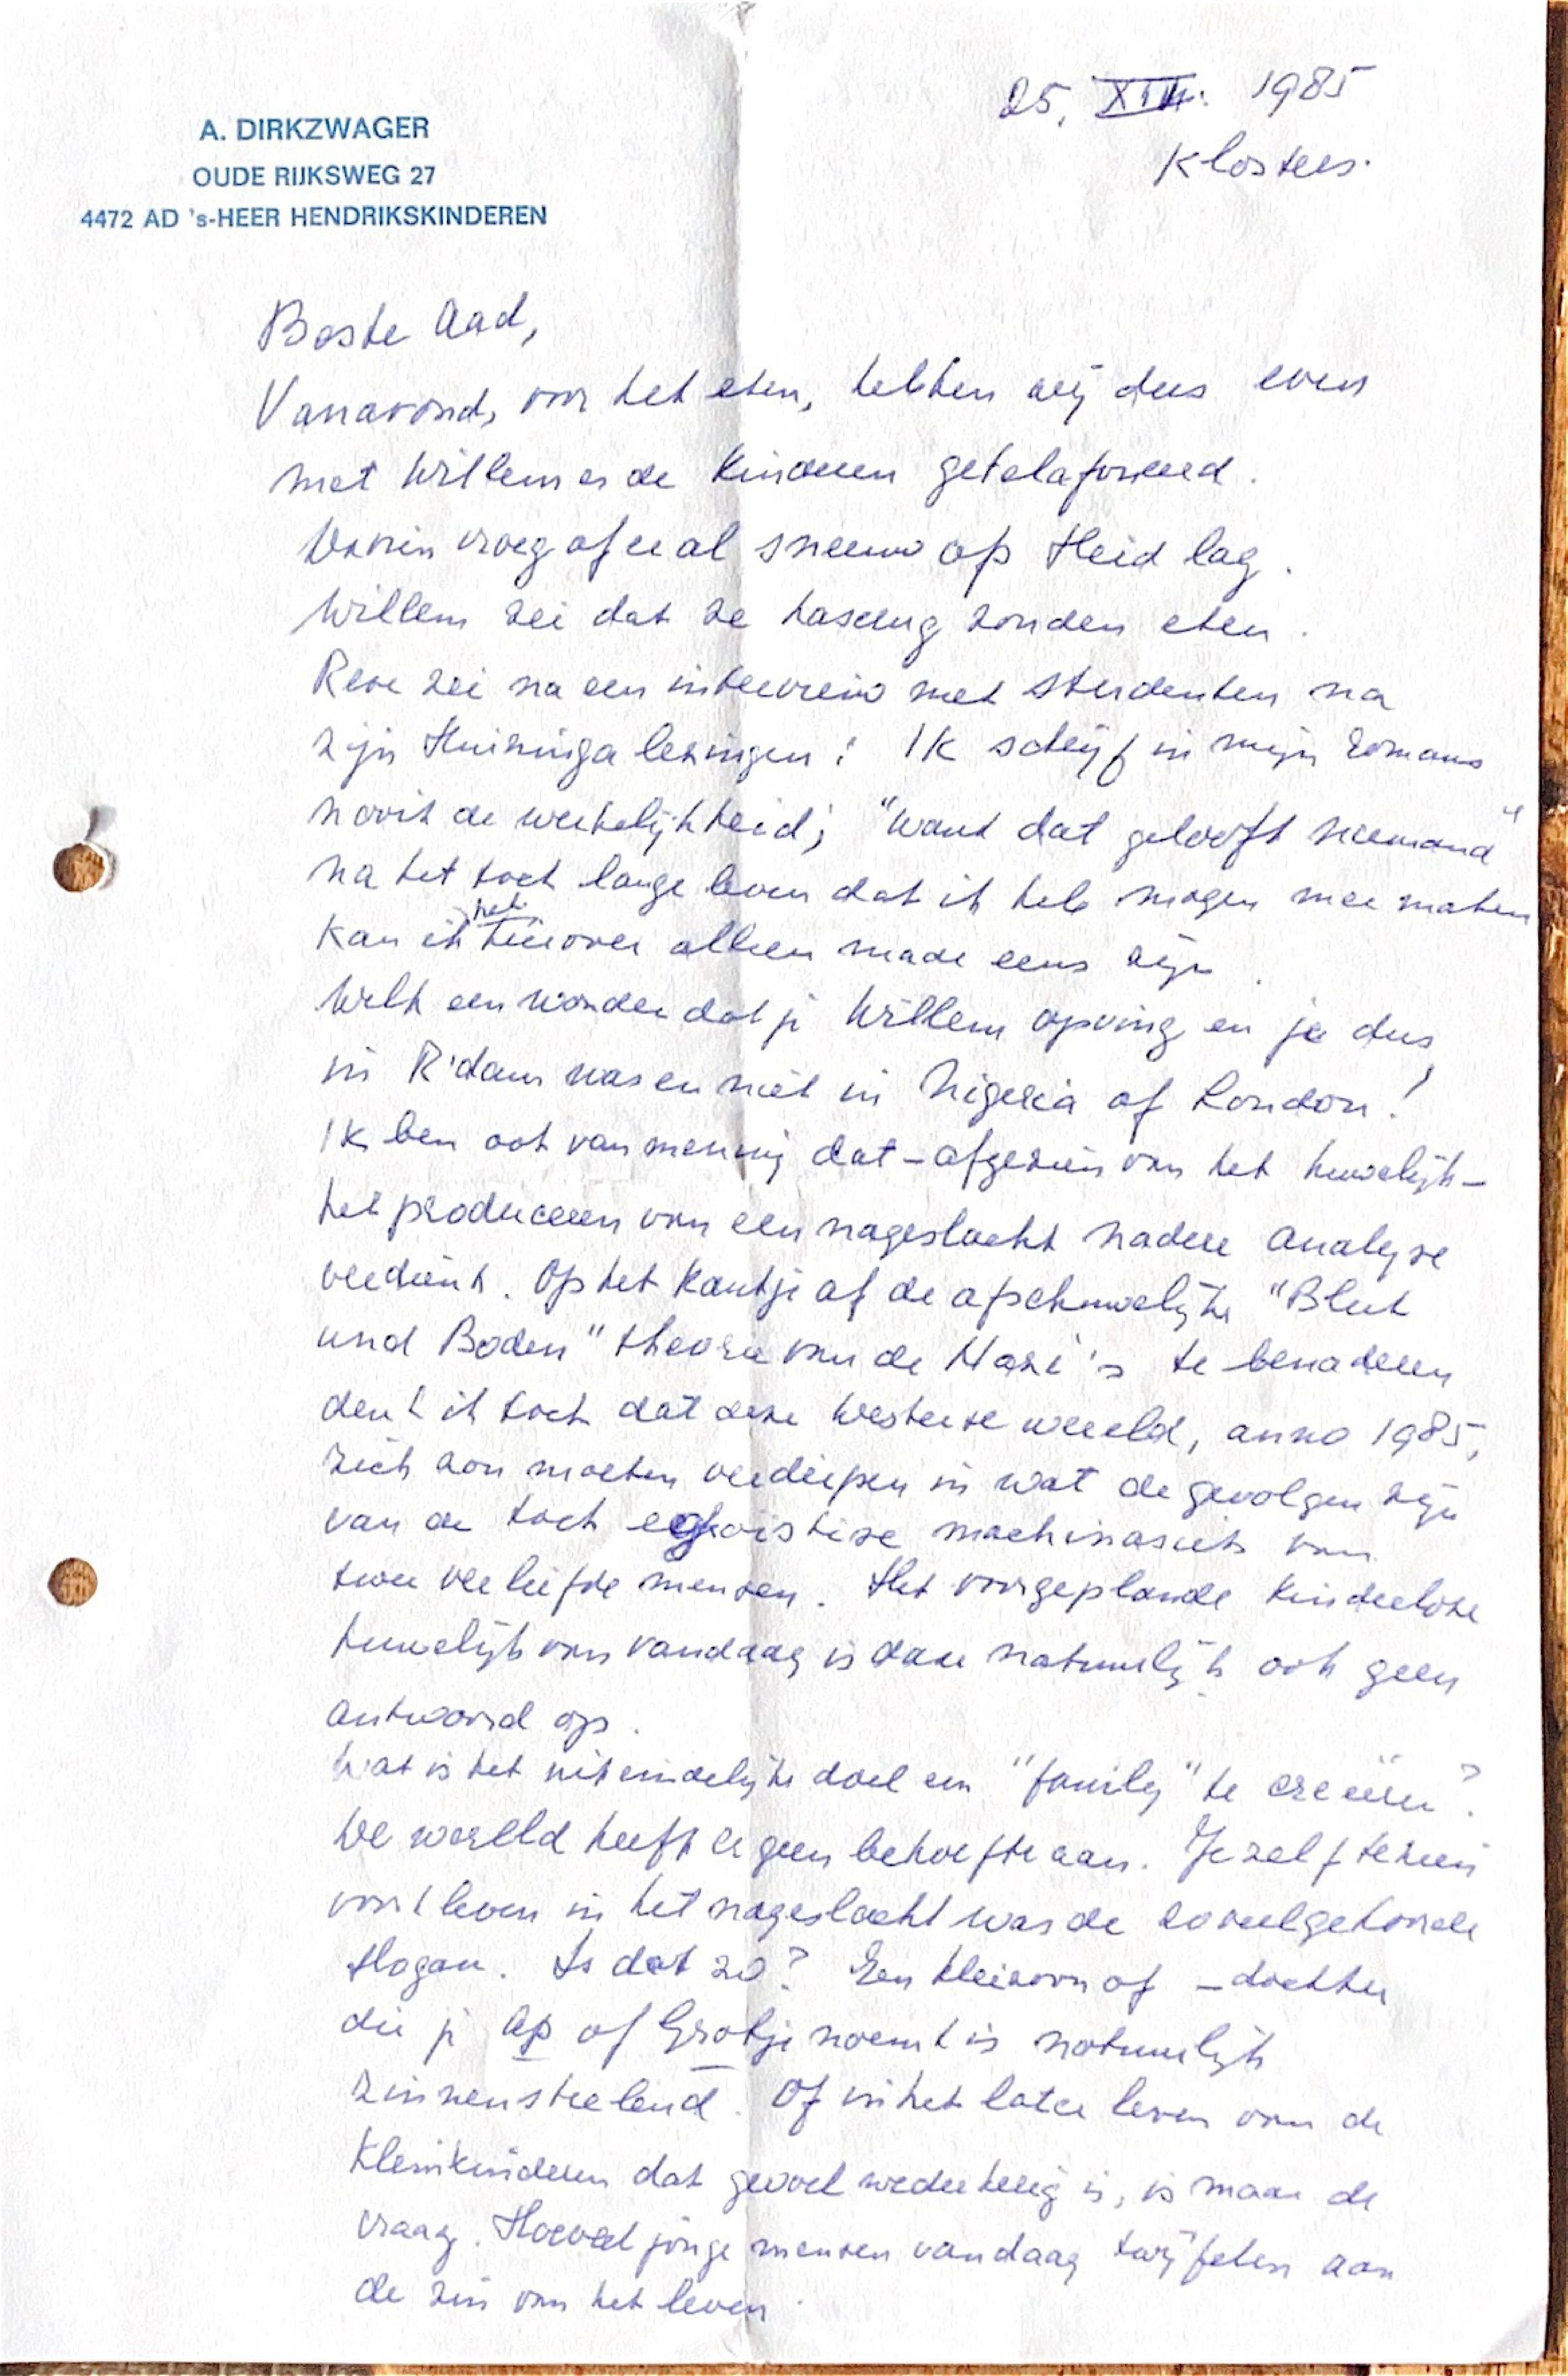 A. DIRKZWAGER
OUDE RIJKSWEG 27
4472 AD 's-HEER HENDRIKSKINDEREN
25, XII. 1985
Klosters.
Beste Aad,
Vanavond, voor het eten, hebben wij dus even
met Willem en de Kinderen getelefoneerd.
vroeg of er al sneeuw op Heid lag.
Willem zei dat ze haring zouden eten.
Reve zei na een interview met studenten na
zijn Huizinga lezingen: Ik schrijf in mijn romans
nooit de werkelijkheid; "want dat gelooft niemand"
na het toch lange leven dat ik heb mogen mee maken
kan ik het hierover alleen maar eens zijn.
Welk een wonder dat je Willem opving en je dus
in R'dam was en niet in Nigeria of London!
Ik ben ook van mening dat - afgezien van het huwelijk -
het produceren van een nageslacht nadere analyse
verdient. Op het kantje af de afschuwelijke "Blut
und Boden" theorie van de Nazi's te benaderen
denk ik toch dat deze Westerse wereld, anno 1985,
zich zou moeten verdiepen in wat de gevolgen zijn
van de toch egoistise machinasies van
twee verliefde mensen. Het voorgeplande kinderloze
huwelijk van vandaag is daar natuurlijk ook geen
antwoord op.
Wat is het uiteindelijke doel een "family" te creëren?
De wereld heeft er geen behoefte aan. Jezelf te zien
voortleven in het nageslacht was de zoveelgehoorde
slogan. Is dat zo? Een kleizoon of - dochter
die je Op of Grotje noemt is natuurlijk
zinnenstrelend. Of in het later leven van de
Kleinkinderen dat gevoel wederkerig is, is maar de
vraag. Hoeveel jonge mensen vandaag twijfelen aan
de zin van het leven.